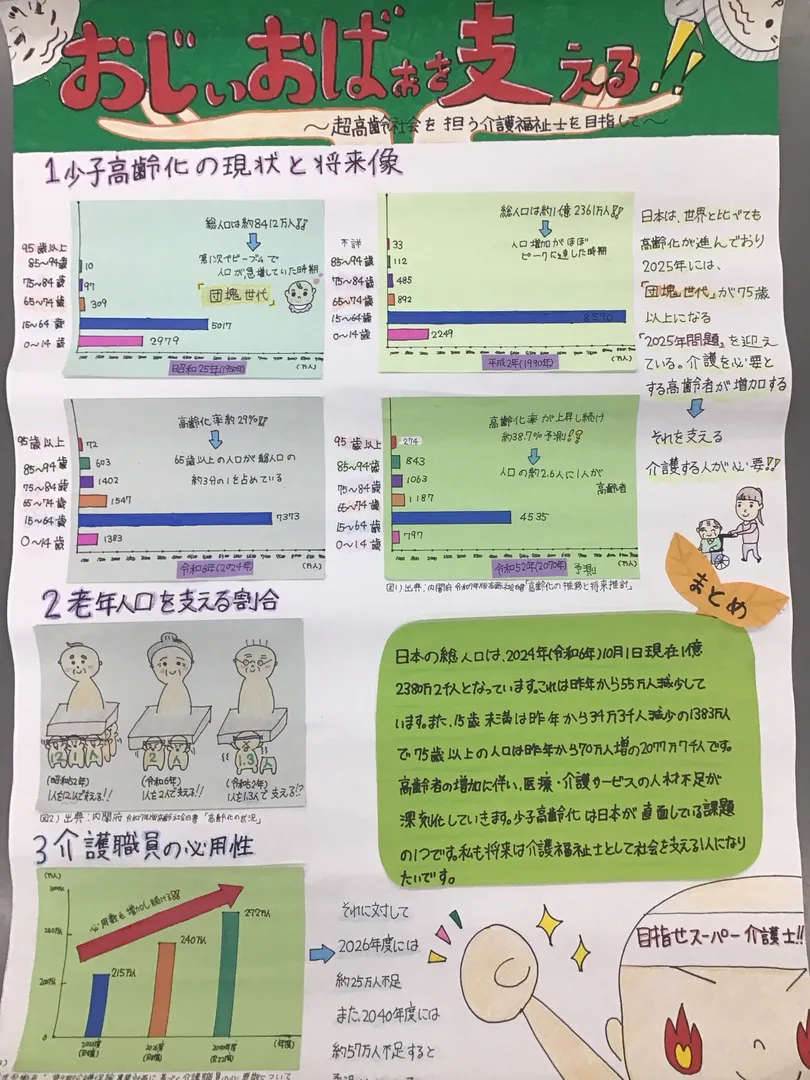 おじぃおばぁを支える!!
〜超高齢社会を担う介護福祉士を目指して〜
1 少子高齢化の現状と将来像
総人口は約8412万人!!
第1次ベビーブームで
人口が急増していた時期
「団塊世代」
95歳以上
85〜94歳 10
75〜84歳 97
65〜74歳 309
15〜64歳 5017
0〜14歳 2979
(万人)
昭和25年(1950年)
総人口は約1億2361万人!!
人口増加がほぼ
ピークに達した時期
不詳 33
85〜94歳 112
75〜84歳 485
65〜74歳 892
15〜64歳 8590
0〜14歳 2249
(万人)
平成2年(1990年)
日本は、世界と比べても
高齢化が進んでおり
2025年には、
「団塊世代」が75歳
以上になる
「2025年問題」を迎え
ている。介護を必要と
する高齢者が増加する
それを支える
介護する人が必要!!
高齢化率約29%!!
65歳以上の人口が総人口の
約3分の1を占めている
95歳以上 72
85〜94歳 603
75〜84歳 1402
65〜74歳 1547
15〜64歳 7373
0〜14歳 1383
(万人)
令和6年(2024年)
高齢化率が上昇し続け
約38.7%予測!!
人口の約2.6人に1人が
高齢者
95歳以上 274
85〜94歳 843
75〜84歳 1063
65〜74歳 1187
15〜64歳 4535
0〜14歳 797
(万人)
令和52年(2070年) 予測
図1) 出典:内閣府 「高齢化の推移と将来推計」
2 老年人口を支える割合
12.1人
2人
1.3人
(昭和52年)
(令和6年)
1人を2人で支える!!
(令和52年)
1人を1.3人で支える!?
図2) 出典:内閣府 「高齢化の状況」
まとめ
日本の総人口は、2024年(令和6年)10月1日現在1億
2380万2千人となっています。これは昨年から55万人減少して
います。また、15歳未満は昨年から34万3千人減少の1383万人
で75歳以上の人口は昨年から70万人増の2077万7千人です。
高齢者の増加に伴い、医療・介護サービスの人材不足が
深刻化していきます。少子高齢化は日本が直面している課題
の1つです。私も将来は介護福祉士として社会を支える1人になり
たいです。
3 介護職員の必用性
(万人)
必用数も増加し続ける!!
215万人
240万人
272万人
2022年度
(R4年)
2026年度
(R8年)
2040年度
(R22年)
(年度)
それに対して
2026年度には
約25万人不足
また、2040年度には
約57万人不足すると
目指せスーパー介護士!!